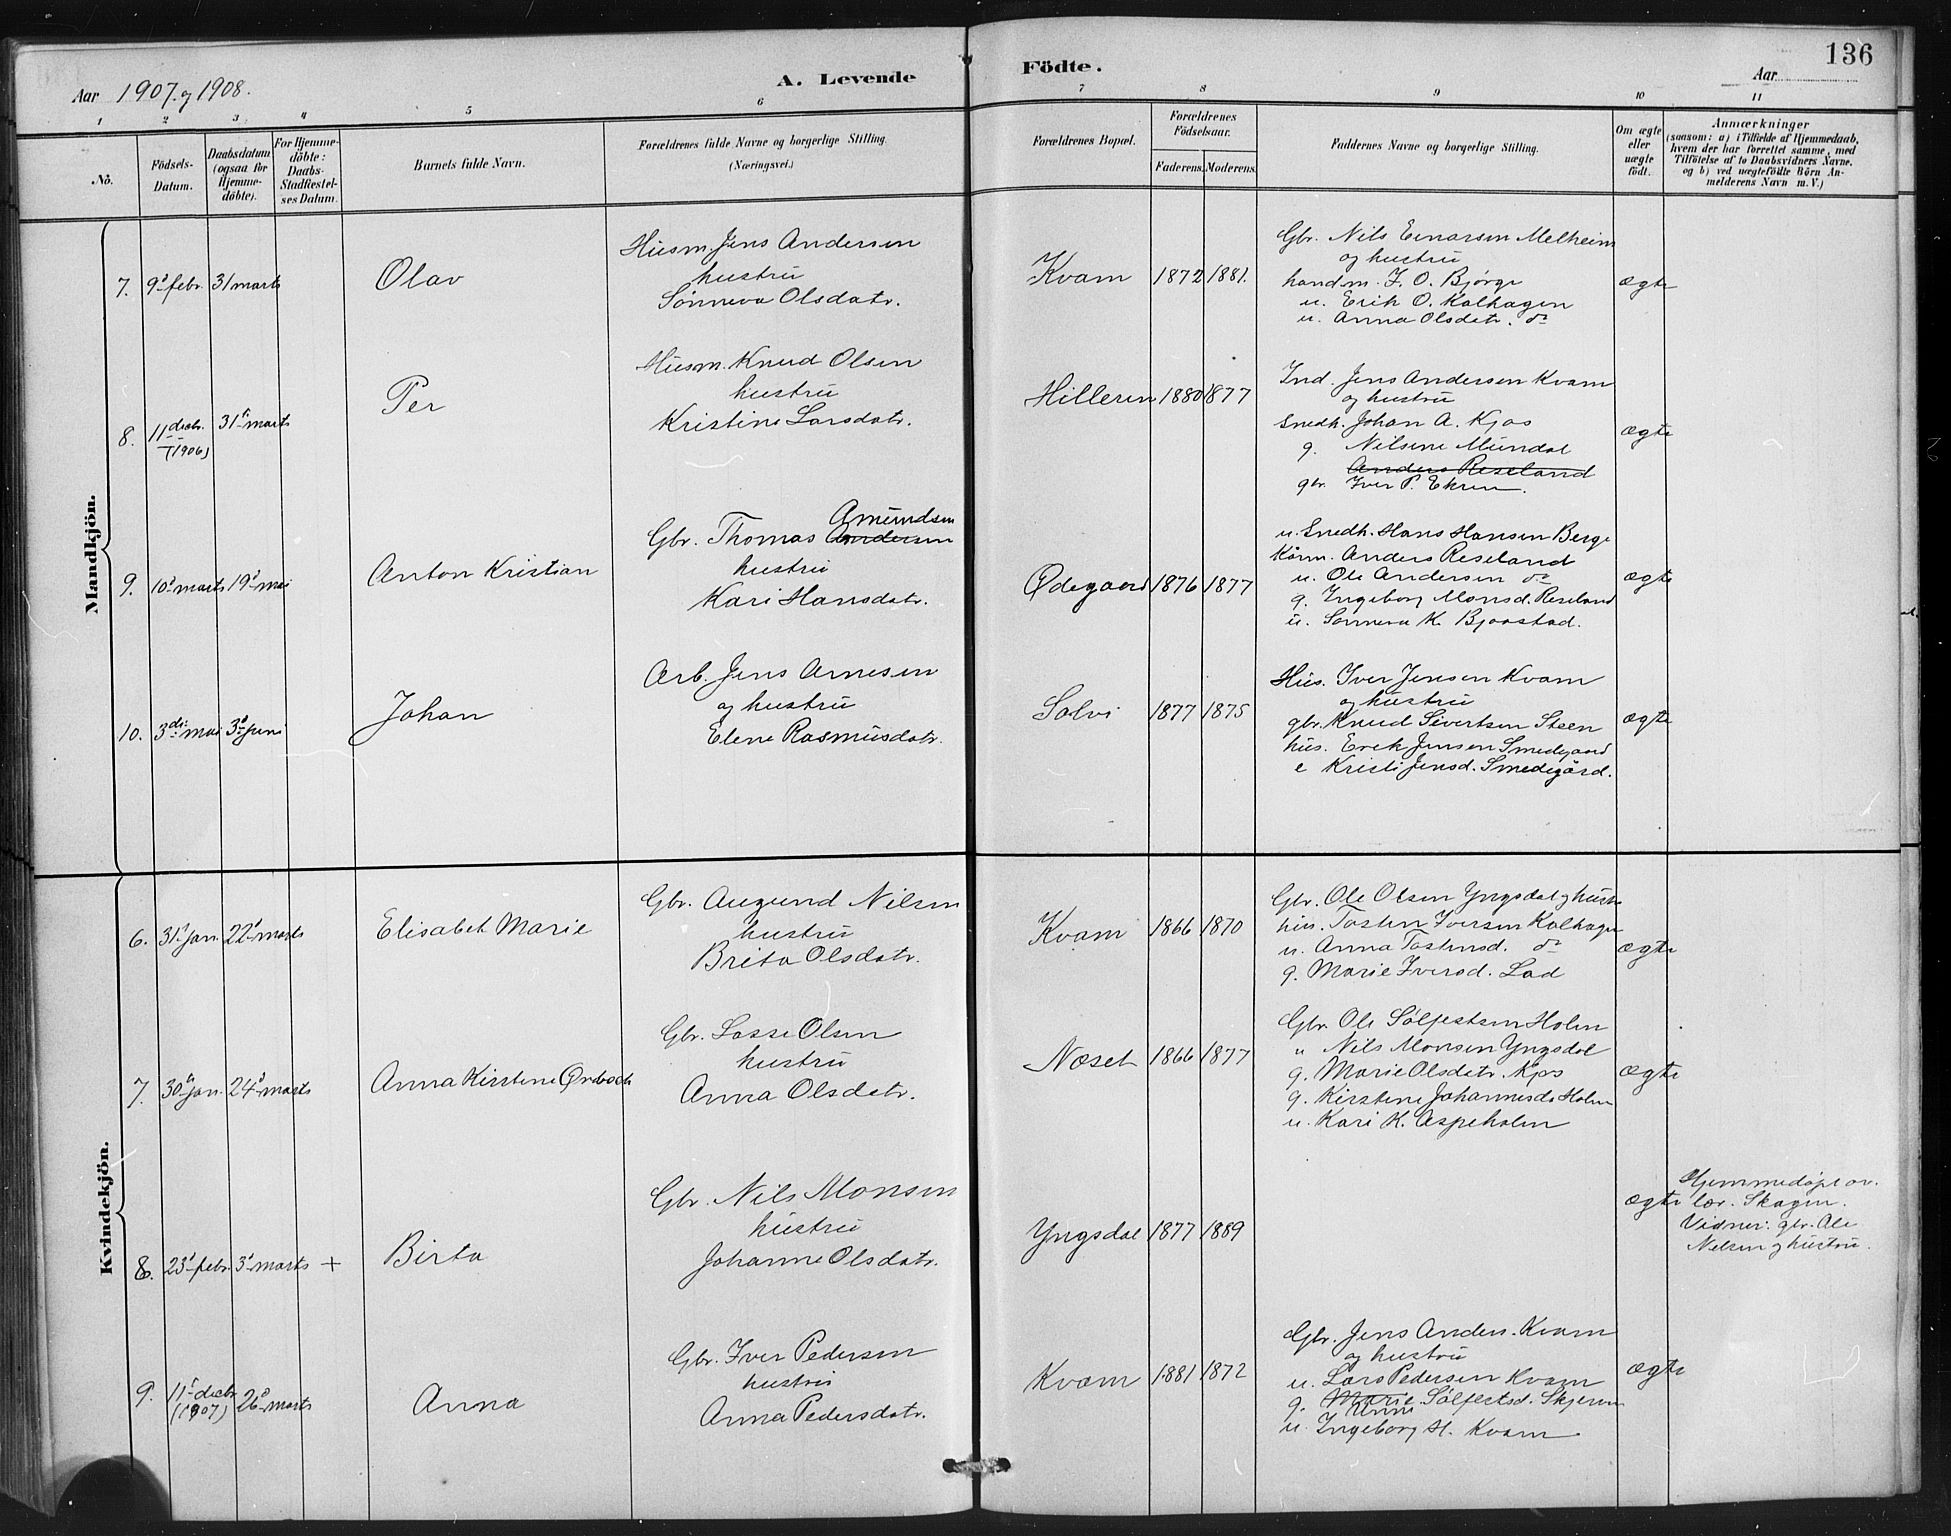 136
Aar 1907. og 1908.
A. Levende Födte.
Aar
1 2 3 4 5 6 7 8 9 10 11
No.
Födsels-Datum.
Daabsdatum (ogsaa for Hjemme-döbte).
For Hjemme-döbte: Daabs-Stadfæstel-ses Datum.
Barnets fulde Navn.
Forældrenes fulde Navne og borgerlige Stilling.
(Næringsvei.)
Forældrenes Bopæl.
Forældrenes Födselsaar.
Faderens. Moderens.
Faddernes Navne og borgerlige Stilling.
Om ægte eller uægte födt.
Anmærkninger
(saasom: a) i Tilfælde af Hjemmedaab,
hvem der har forrettet samme, med
Tilföielse af to Daabsvidners Navne.
og b) ved uægtefödte Börn An-
melderens Navn m. V.)
Mandkjön.
7. 9d febr. 31 marts
Olav
Husm. Jens Andersen
hustru
Sønneva Olsdatr.
Kvam 1872 1881.
Gbr. Nils Einarsen Melheim
og hustru
handm. I. O. Bjørge
u. Erik O. Kalhagen
u. Anna Olsdatr. do
ægte
8. 11 decbr. (1906) 31te marts
Per
Husm. Knud Olsen
hustru
Kristine Larsdatr.
Hilleren 1880 1877
Ind. Jens Andersen Kvam
og hustru
Snedk. Johan A. Kjøs
g. Nilsine Mundal
Anders Reseland
gbr. Iver P. Ekren.
ægte
9. 10d marts 19d mai
Anton Kristian
Amundsen
Gbr. Thomas Andersen
hustru
Kari Hansdatr.
Ødegaard 1876 1877
u. Snedk. Hans Hansen Berge
Kårm. Anders Reseland
u. Ole Andersen do
g. Ingeborg Monsd. Reseland
u. Sønneva K. Bjaastad.
ægte
10. 3die mai 3d juni
Johan
Arb. Jens Arnesen
og hustru
Elene Rasmusdatr.
Solvi 1877 1875
Hus. Iver Jensen Kvam
og hustru
gbr. Knud Sivertsen Steen
hus. Erik Jensen Smedegaard
e Kristi Jensd. Smedegård.
ægte
Kvindekjön.
6. 31d jan. 22d marts
Elisabet Marie
Gbr. Augund Nilsen
hustru
Brita Olsdatr.
Kvam 1866 1870
Gbr. Ole Olsen Yngsdal og hustr
hus. Tosten Iversen Kalhagen
u. Anna Tostensd. do
g. Marie Iversd. Lad
ægte
7. 30te jan. 24d marts
Anna Kirstine Ørbæch
Gbr. Lasse Olsen
hustru
Anna Olsdatr.
Næset 1866 1877
Gbr. Ole Sølfestsen Holen
u Nils Monsen Yngsdal
g. Marie Olsdatr. Kjøs
g. Kirstine Johannesdr Holen
u. Kari K. Aspeholen
ægte
8. 23d febr. 3d marts +
Birta
Gbr. Nils Monsen
hustru
Johanne Olsdatr.
Yngsdal 1877 1889
ægte
Hjemmedøpt av.
lær. Skagen.
Vidner: gbr. Ole
Nelsen og hustru.
9. 11te decbr (1907) 26d marts
Anna
Gbr. Iver Pedersen
hustru
Anna Pedersdatr.
Kvam 1881 1872
Gbr. Jens Anders. Kvam
og hustru
u. Lars Pedersen Kvam
g. Marie Sølfestsd. Skjeren
Anne
u. Ingeborg H. Kvam
ægte